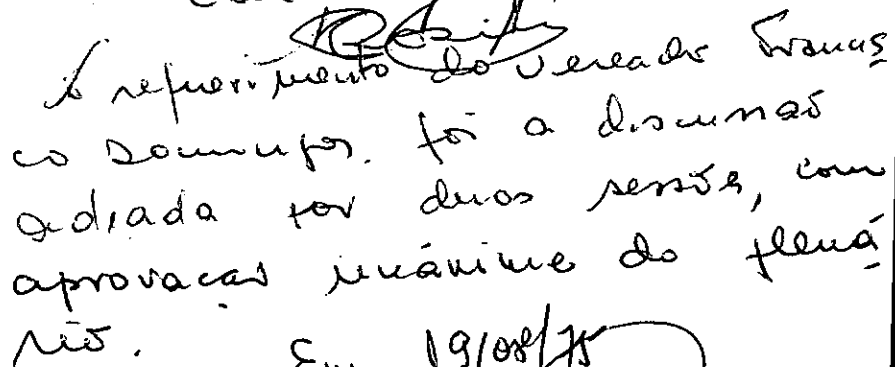 A requerimento do vereador Francis
co Domingos. foi a discussão
adiada por duas sessões, com
aprovação unânime do plená
rio.
Em 19/08/75